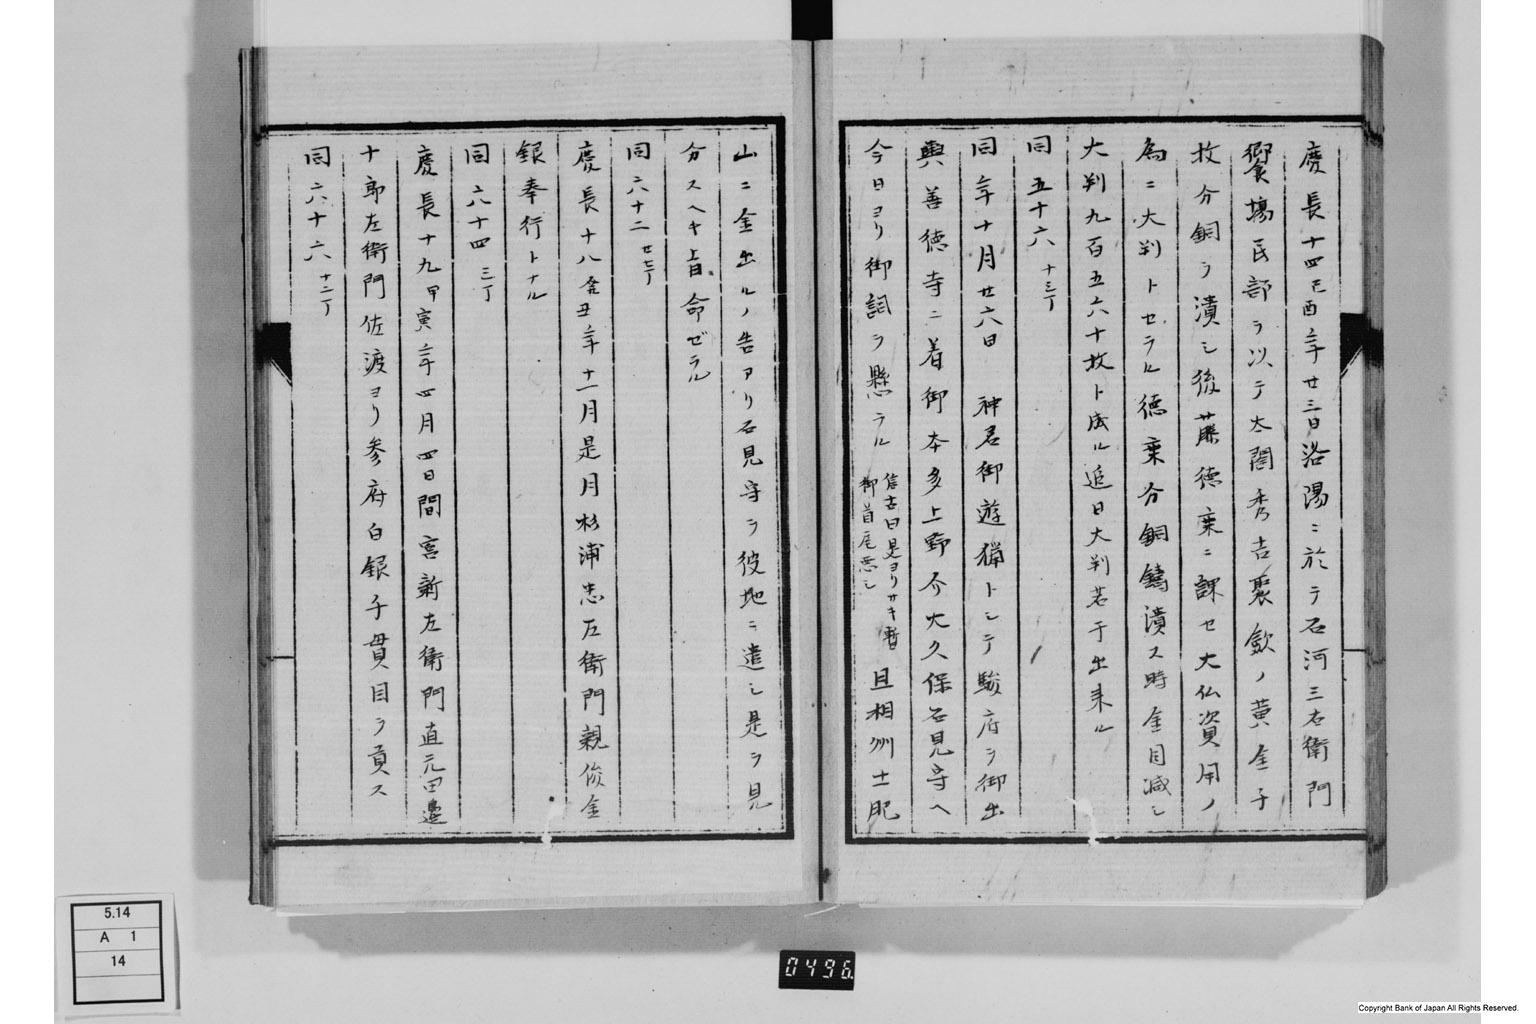 慶長十四己酉年廿三日洛陽ニ於テ石河三右衛門
饗場民部ヲ以テ太閤秀吉聚歛ノ黄金子
枚分銅ヲ潰シ後藤徳乗ニ課セ大仏資用ノ
為ニ大判トセラル徳乗分銅鋳潰ス時金目減シ
大判九百五六十枚ト成ル追日大判若干出来ル
同五十六 十三丁
同年十月廿六日 神君御遊猟トシテ駿府ヲ御出
興善徳寺ニ着御本多上野介大久保石見守ヘ
今日ヨリ御詞ヲ懸ラル 信古曰是ヨリサキ暫
御首尾悪シ 且相州土肥
山ニ金出ルノ告アリ石見守ヲ彼地ニ遣シ是ヲ見
分スヘキ旨命ゼラル
同六十二 廿七丁
慶長十八癸丑年十一月是月杉浦忠左衛門親俊金
銀奉行トナル
同六十四 三丁
慶長十九甲寅年四月四日間宮新左衛門直元田邊
十郎左衛門佐渡ヨリ参府白銀千貫目ヲ貢ス
同六十六 十二丁
5.14
A 1
14
0496
Copyright Bank of Japan All Rights Reserved.